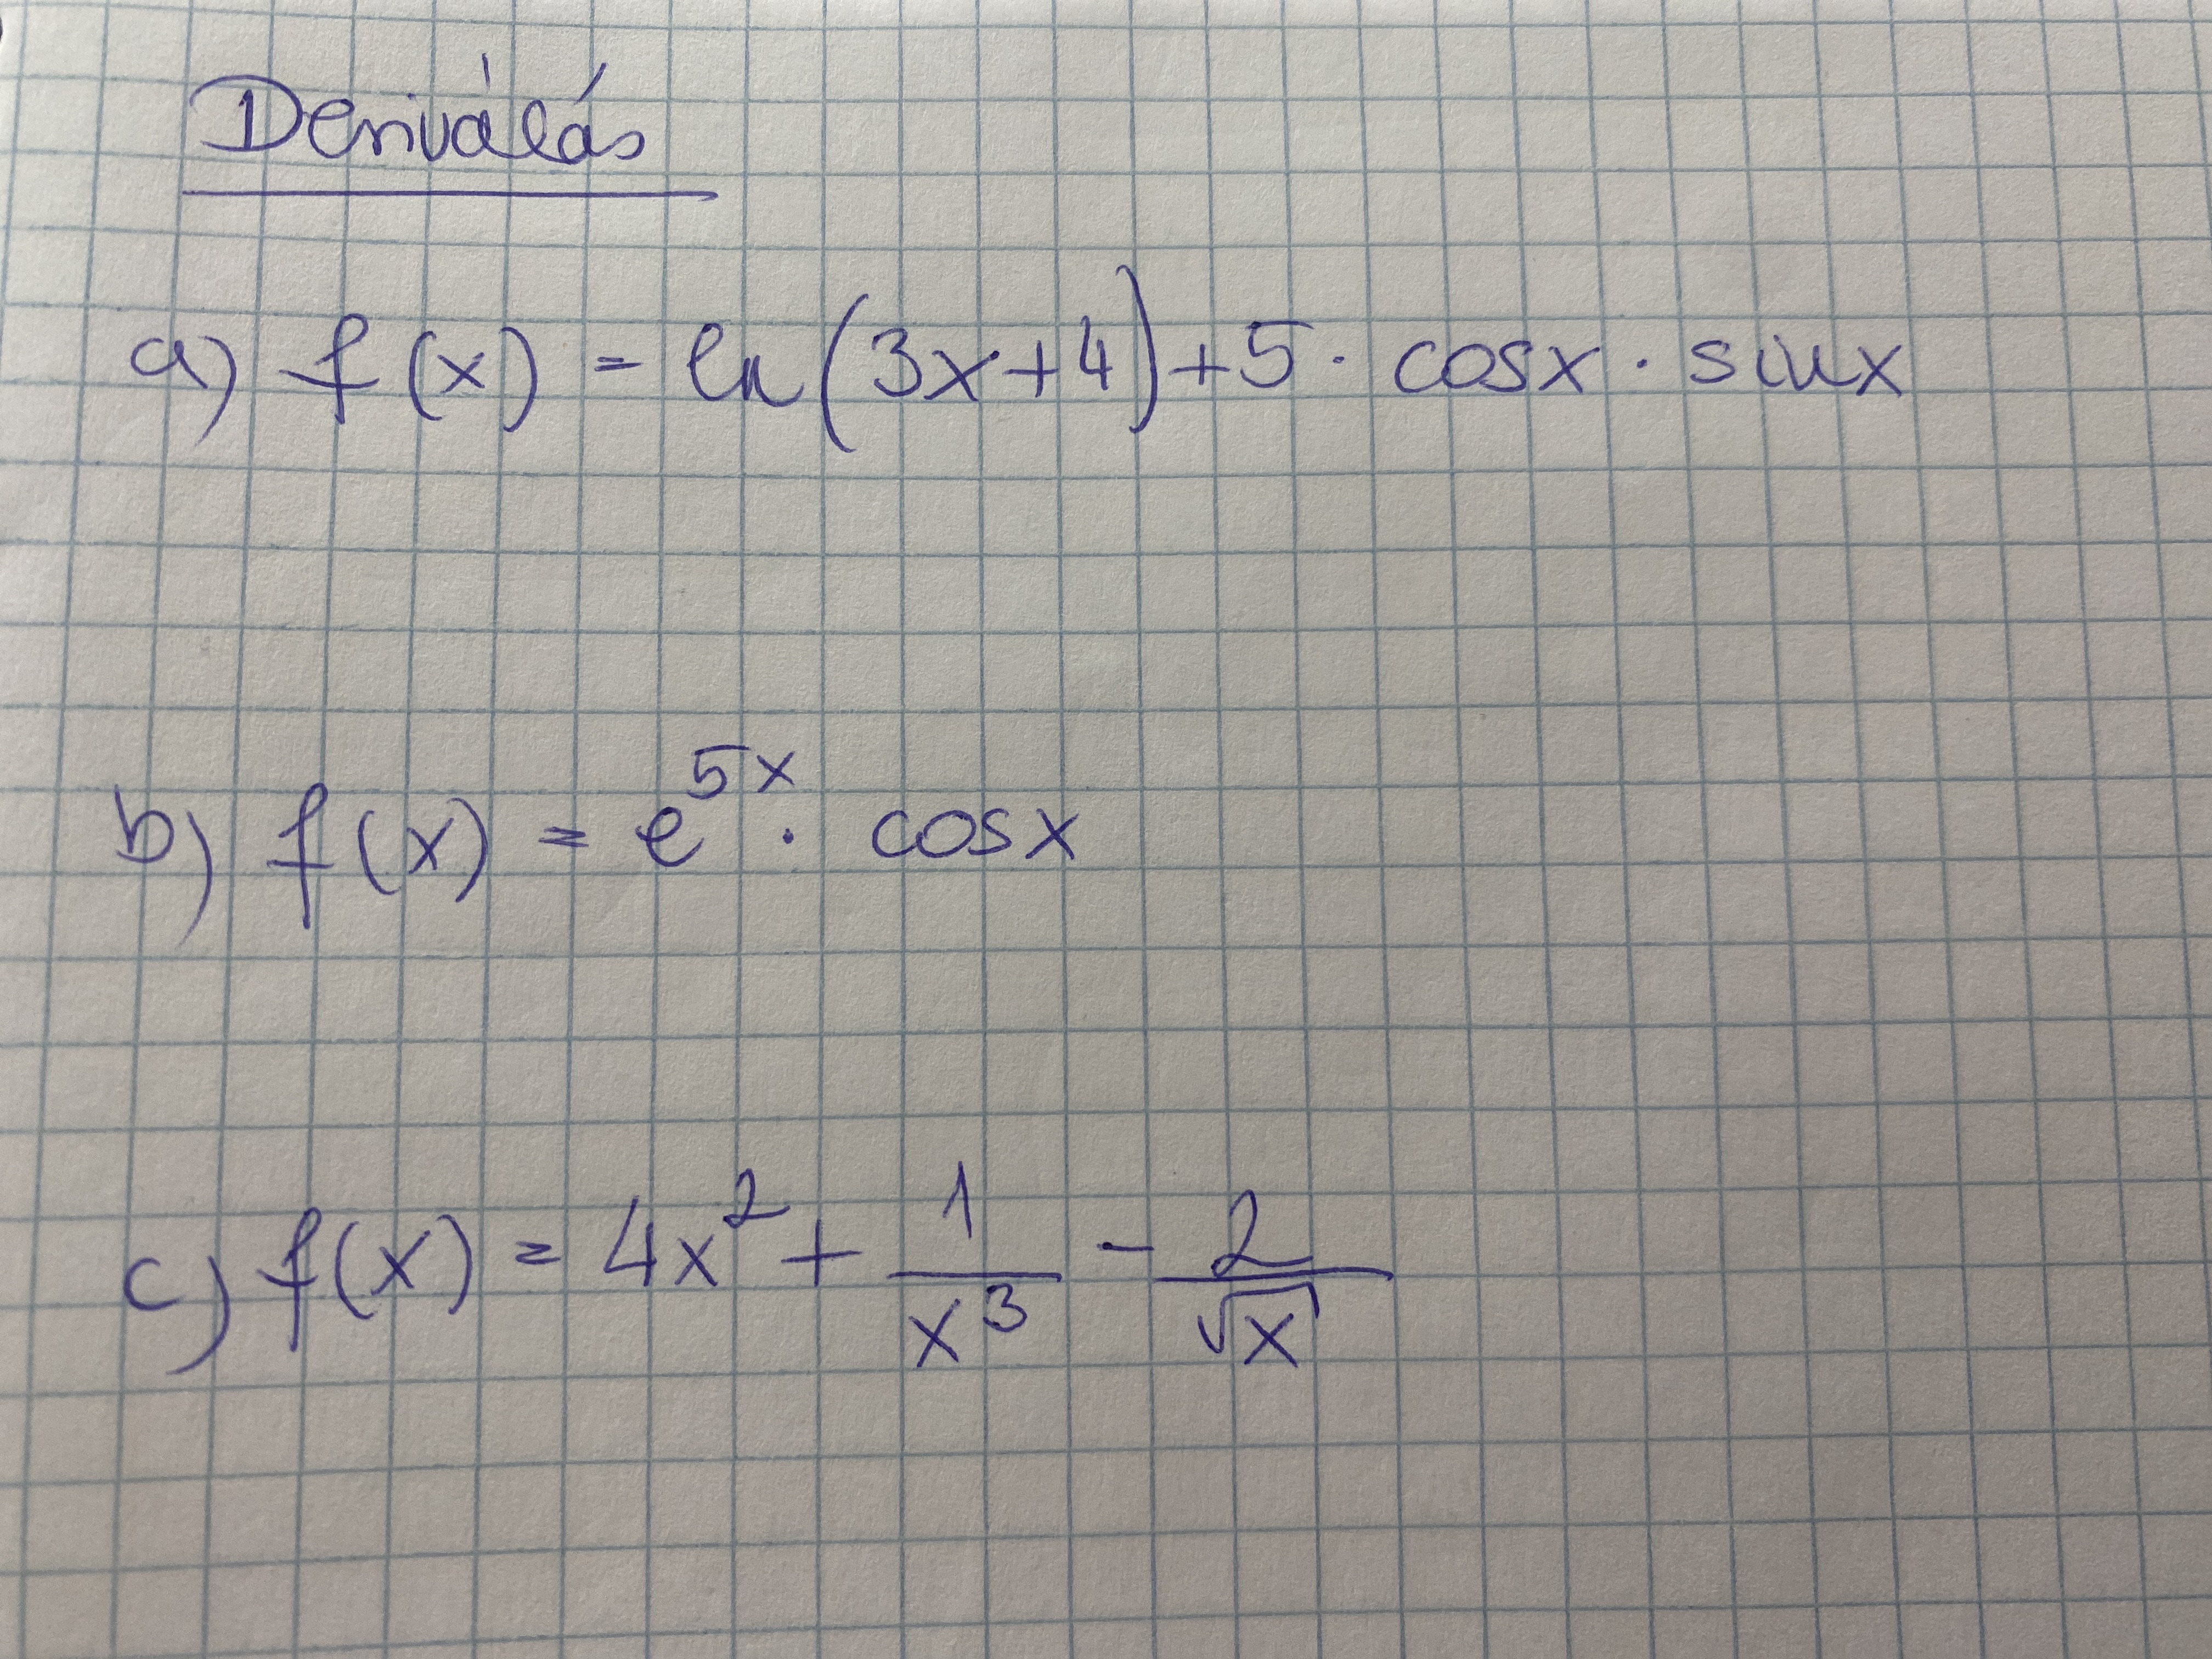 Deriválás
a) f(x) = ln(3x+4)+5· cosx · sinx
b) f(x) = e^{5x} · cosx
c) f(x) = 4x^2 + \frac{1}{x^3} - \frac{2}{\sqrt{x}}